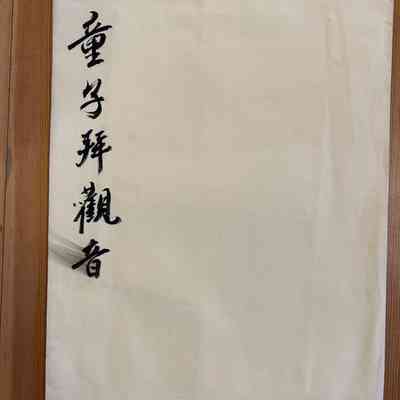 童子拜觀音